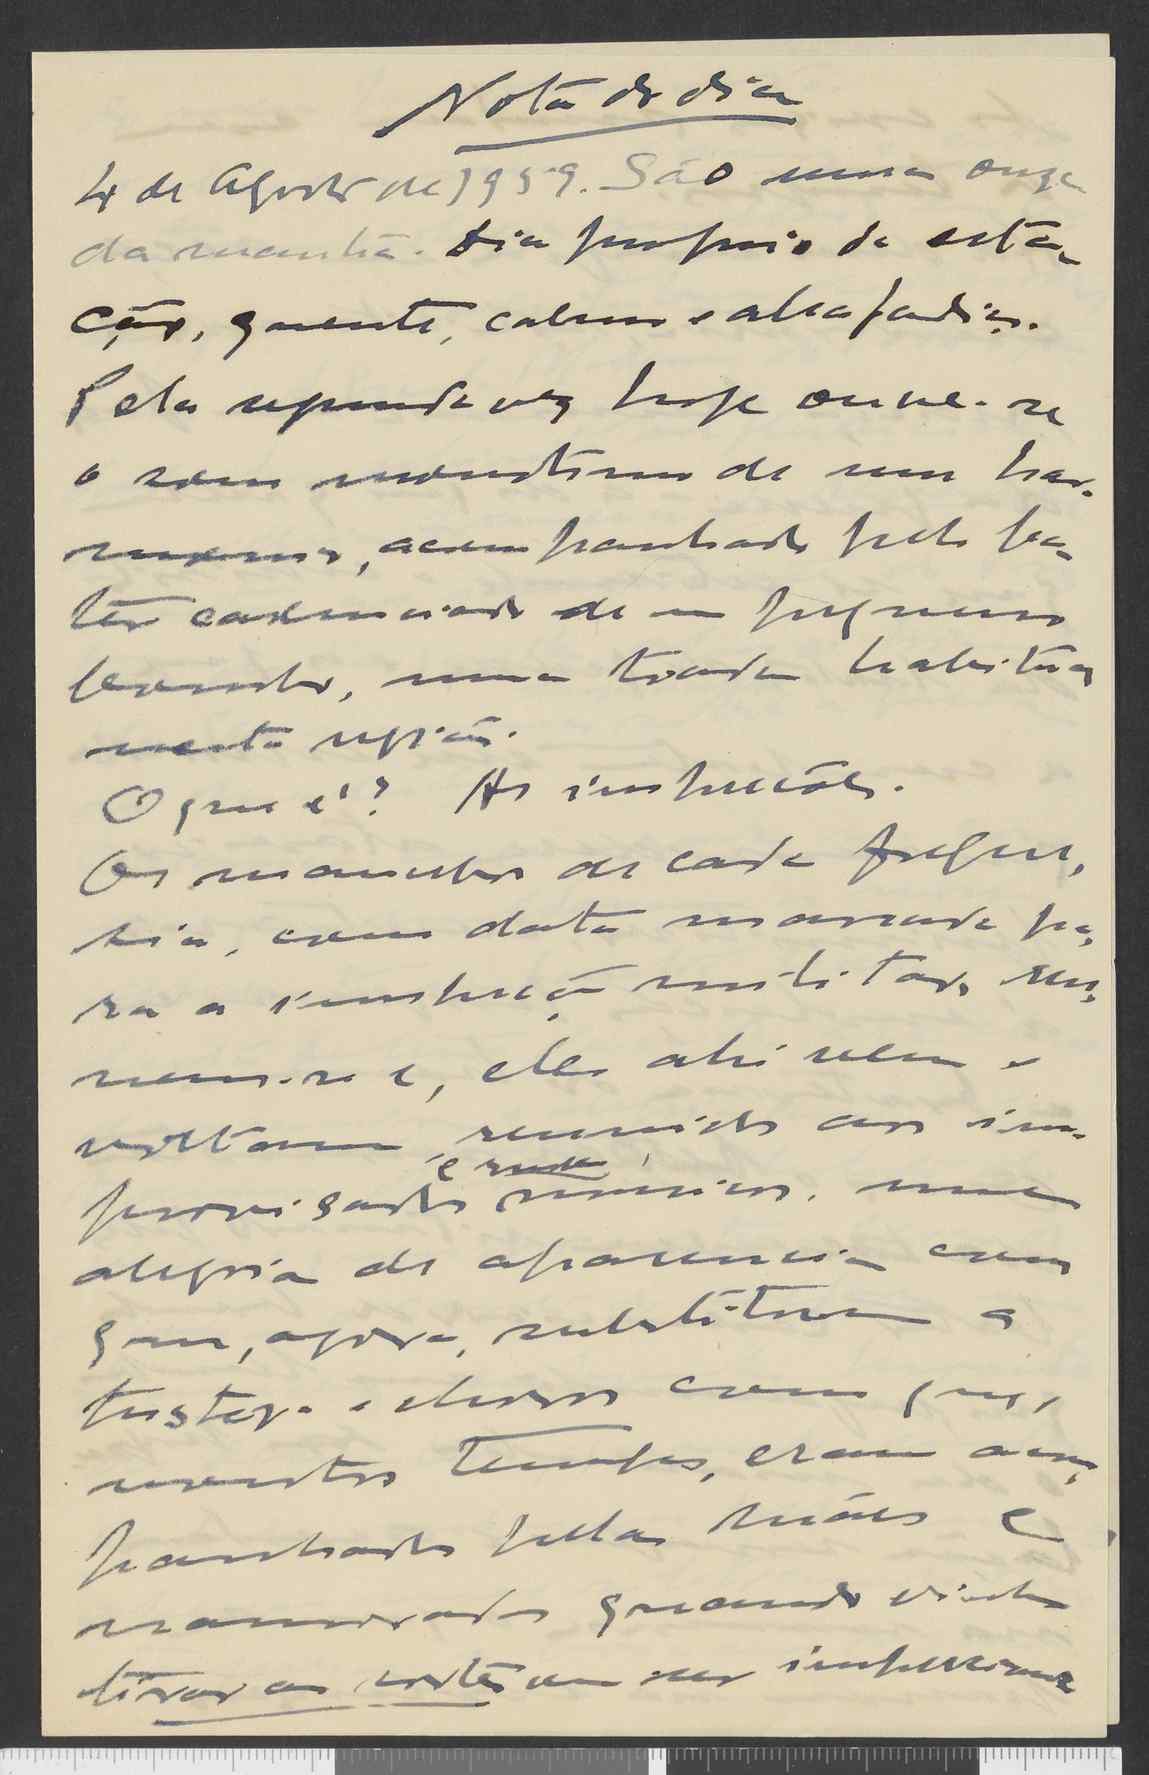 Nota do dia
4 de Agosto de 1959. São umas onze
da manhã. Dia proprio da esta-
ção, quente, calmo e abafadiço.
Pela segunda vez hoje ouve-se
o som monotono de um har-
monio, acompanhado pelo ba-
ter cadenciado de um pequeno
bombo, numa toada habitual
nesta região.
O que é? As inspecções.
Os mancebos de cada fregue-
sia, com data marcada pa-
ra a inspecção militar, reu-
nem-se e, eles ahi vem e
voltam, reunidos aos im-
provisados e rudes musicos, numa
alegria de aparencia com
que, agora, substituem a
tristeza e choros com que,
noutros tempos, eram acom-
panhados pelas mães e
namoradas quando vinham
tirar as sortes ou ser inspeccionados